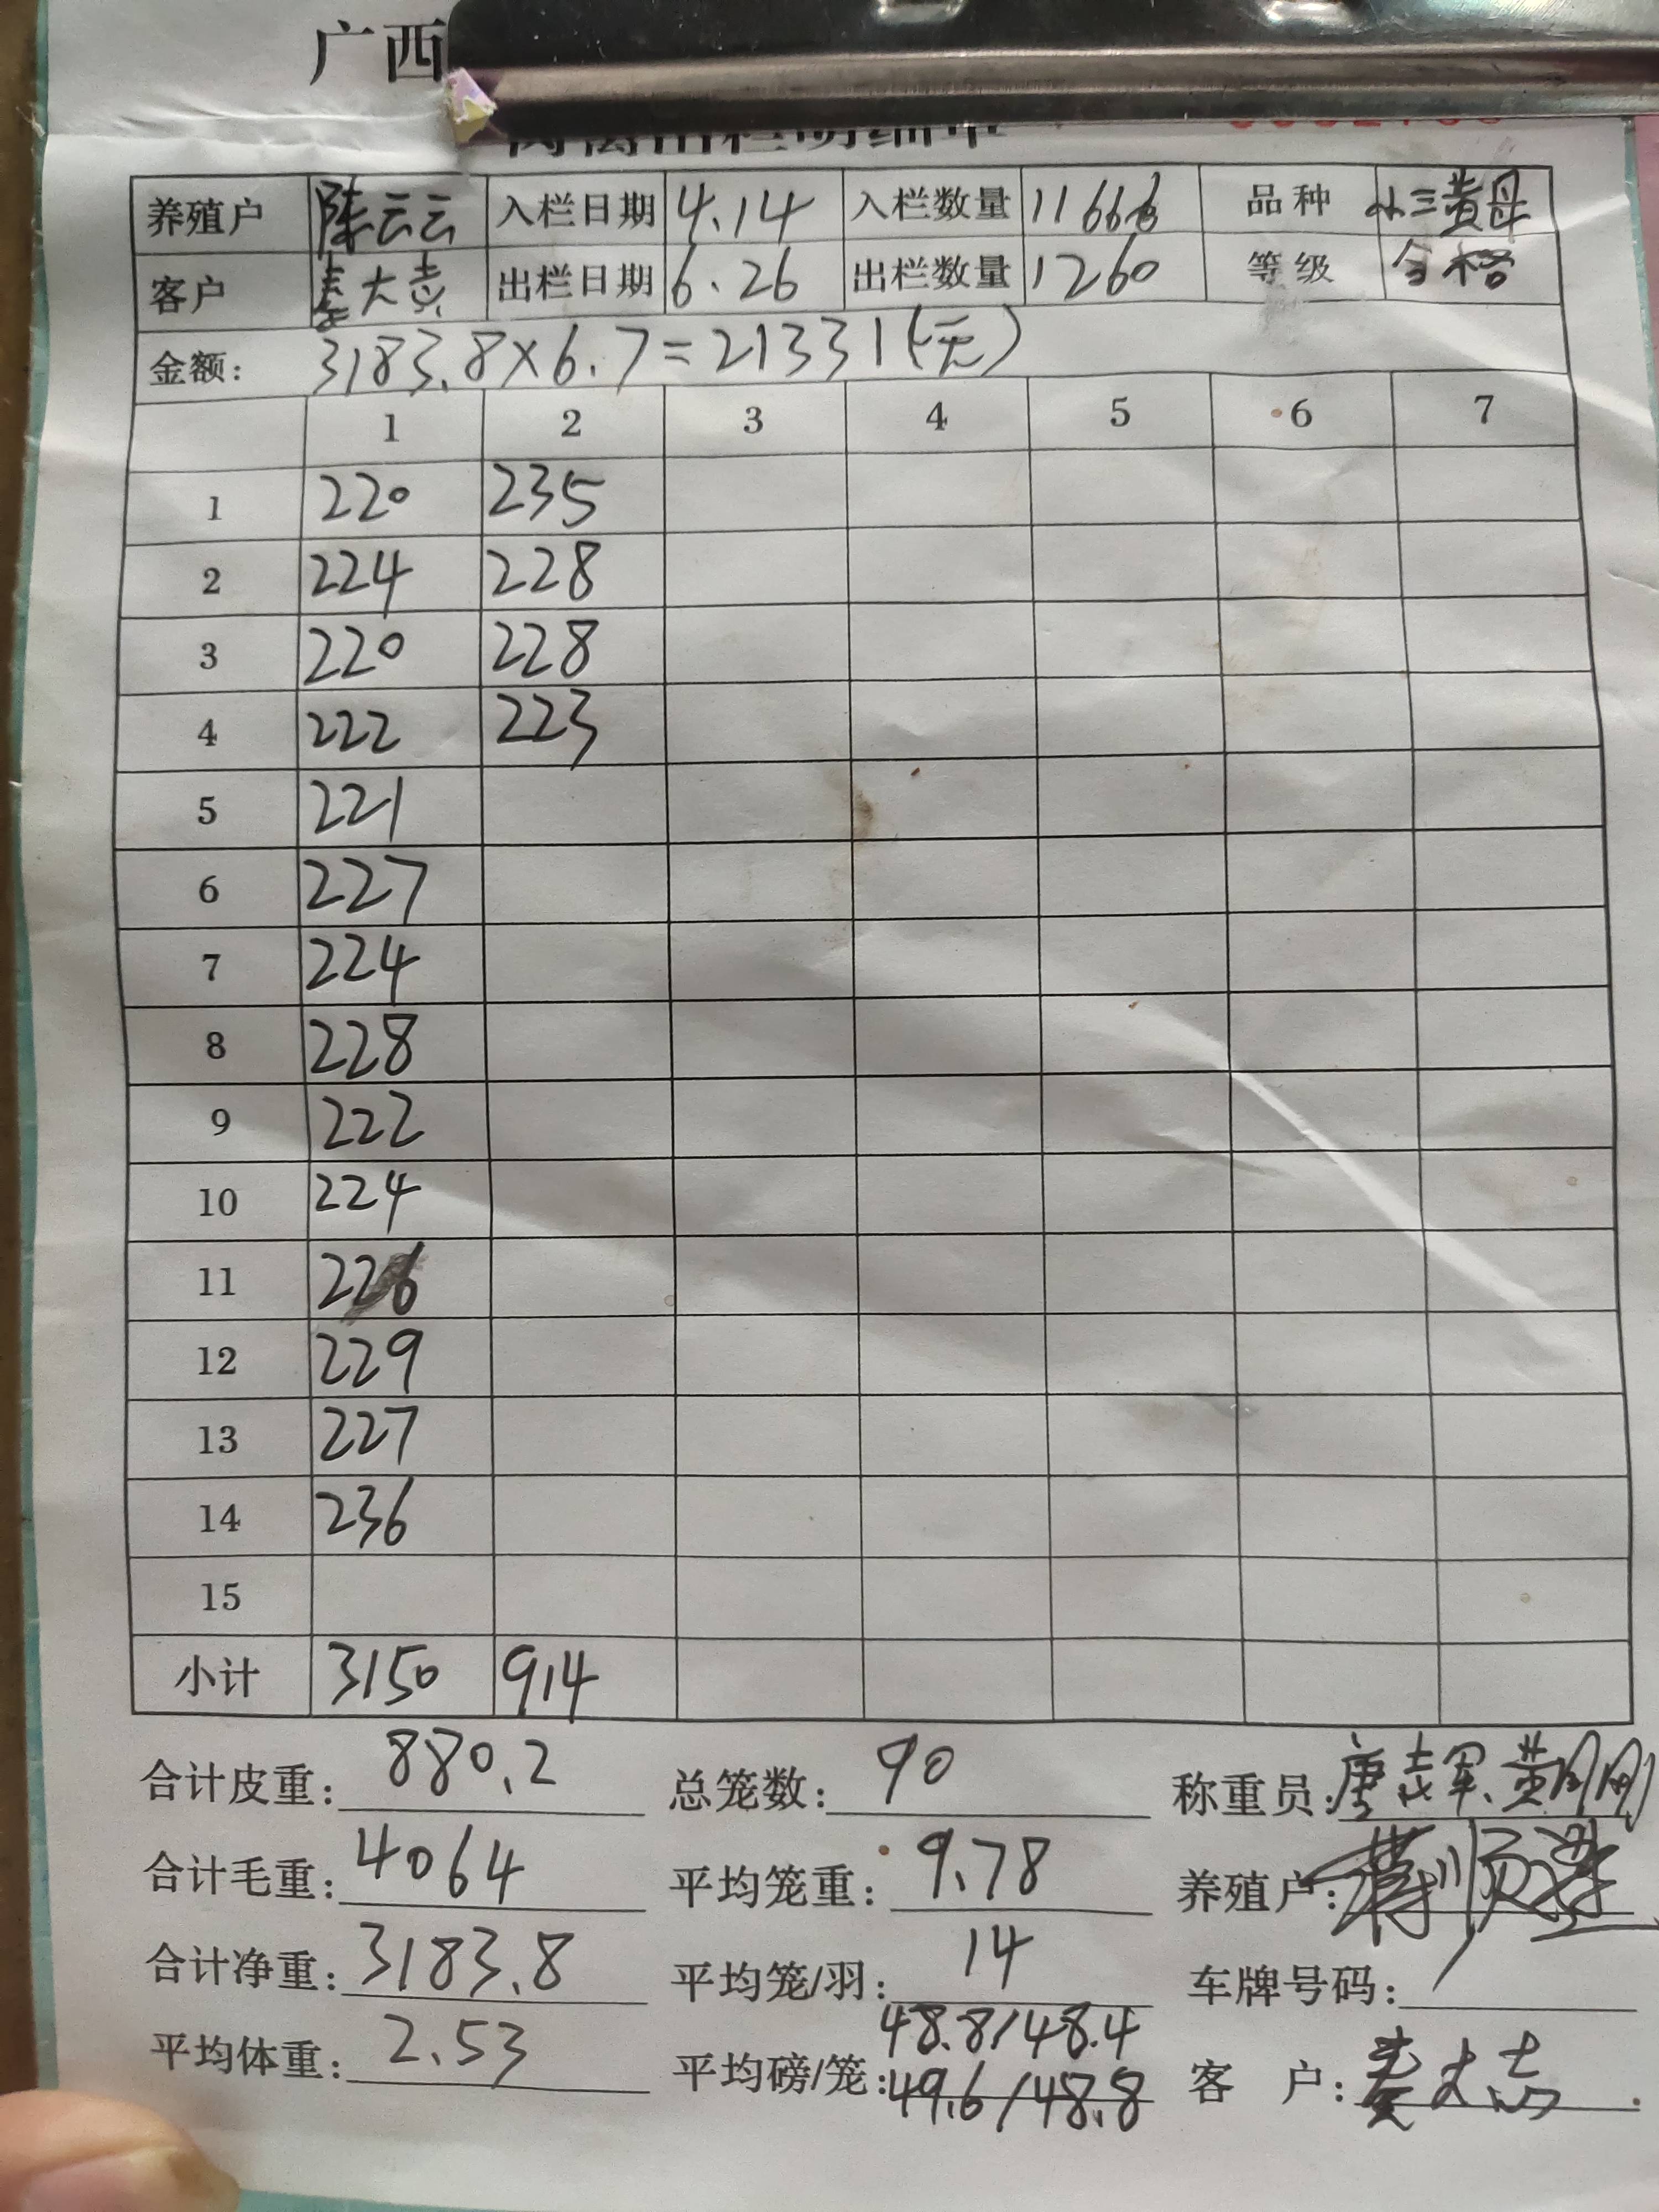 广西
养殖户 陈云云 入栏日期 4.14 入栏数量 11666 品种 小三黄母
客户 秦大志 出栏日期 6.26 出栏数量 1260 等级 合格
金额: 3183.8×6.7=21331(元)
1 2 3 4 5 6 7
1 220 235
2 224 228
3 220 228
4 222 223
5 221
6 227
7 224
8 228
9 222
10 224
11 226
12 229
13 227
14 236
15
小计 3150 914
合计皮重: 880.2 总笼数: 90 称重员: 唐志军、黄刚刚
合计毛重: 4064 平均笼重: 9.78 养殖户:
合计净重: 3183.8 平均笼/羽: 14 车牌号码: /
平均体重: 2.53 平均磅/笼: 48.8/48.4
49.6/48.8 客 户: 秦大志